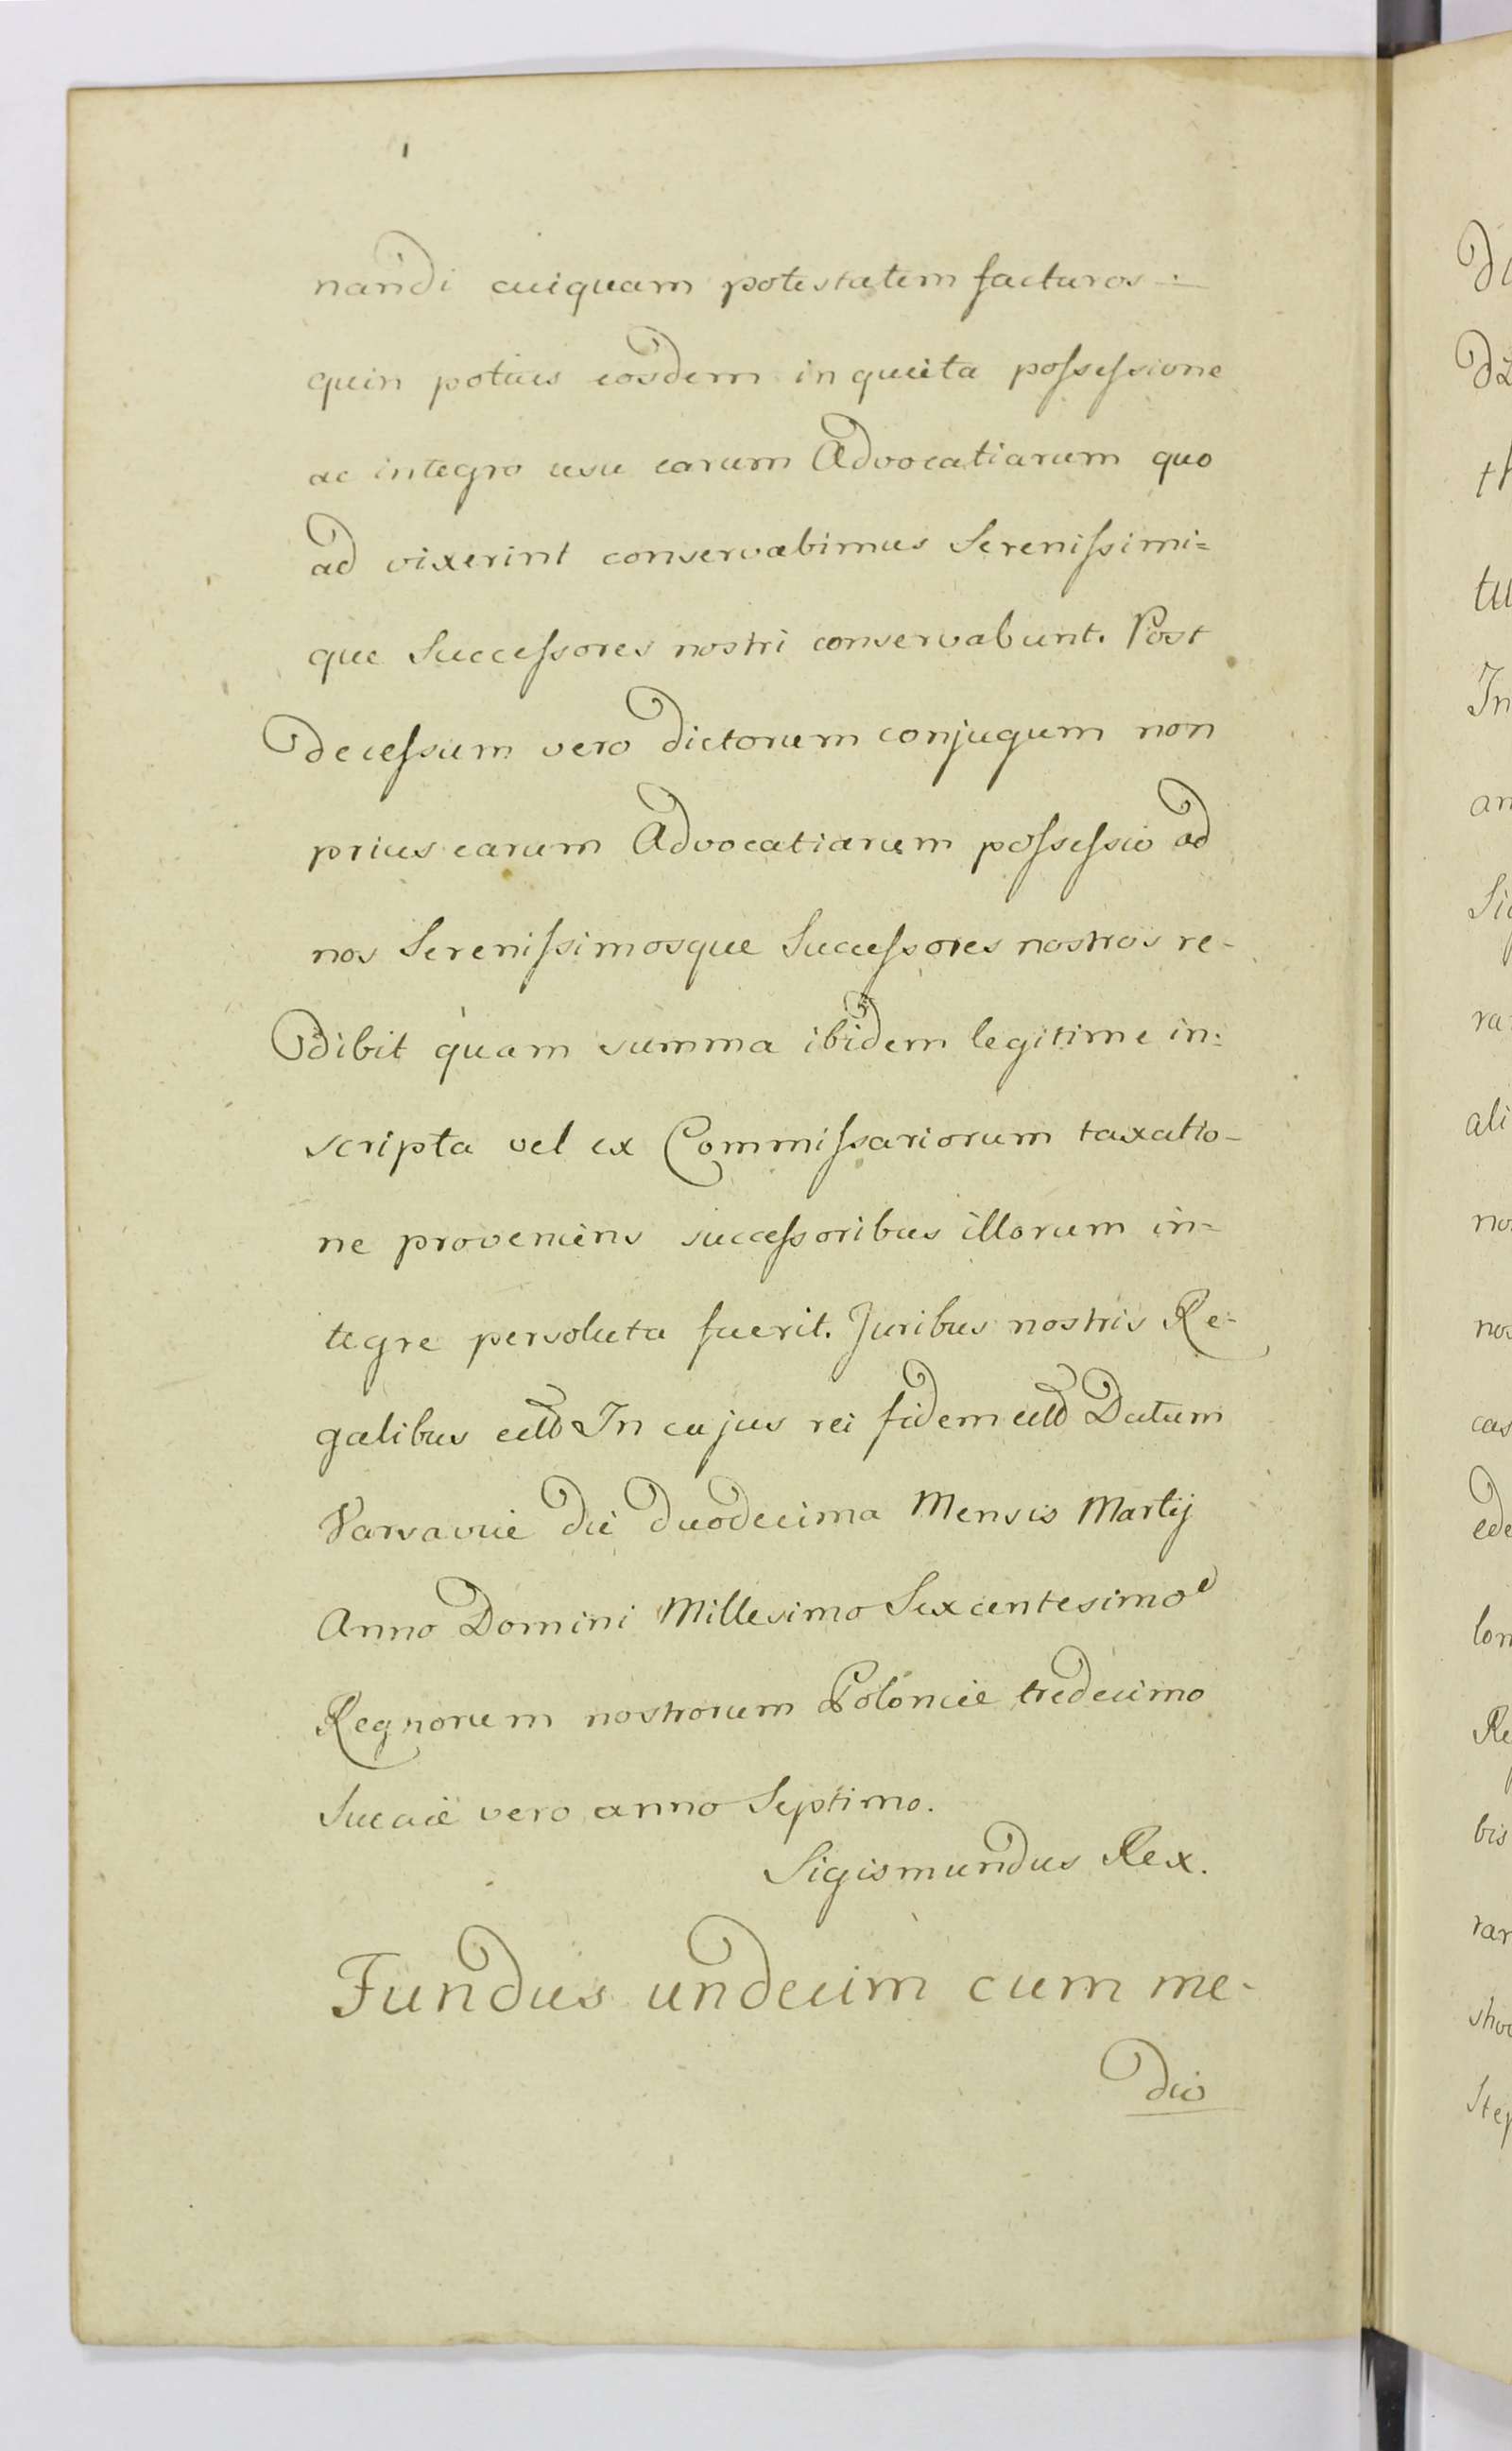 nandi cuiquam potestatem facturos
quin potius eosdem in quieta possessione
ac integro usu earum Advocatiarum quo
ad vixerint conservabimus Serenissimi=
que Successores nostri conservabunt. Post
decessum vero dictorum conjugum non
prius earum Advocatiarum possessio ad
nos Serenissimosque Successores nostros re-
dibit quam summa ibidem legitime in:
scripta vel ex Commissariorum taxatio-
ne proveniens successoribus illorum in=
tegre persoluta fuerit. Juribus nostris Re-
galibus etta In cujus rei fidem etta Datum
Varsavie die duodecima Mensis Martij
Anno Domini Millesimo Sexcentesimo
Regnorum nostrorum Polonie tredecimo
Suecie vero anno Septimo.
Sigismundus Rex.
Fundus undecim cum me-
dio
Di
th
tu
In
an
ra
ali
no
nos
cas
ede
lon
Re
bis
rar
Step